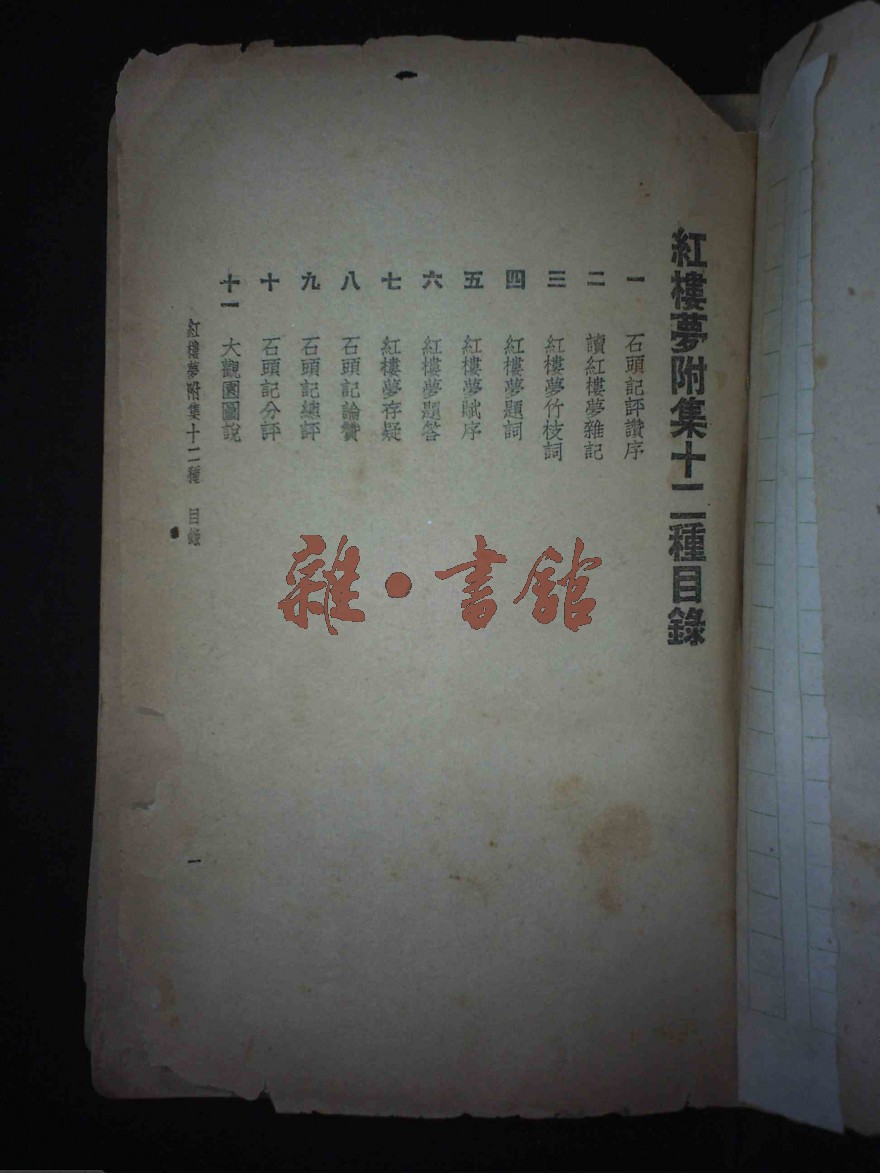 紅樓夢附集十二種目錄
一 石頭記評讚序
二 讀紅樓夢雜記
三 紅樓夢竹枝詞
四 紅樓夢題詞
五 紅樓夢賦序
六 紅樓夢題答
七 紅樓夢存疑
八 石頭記論贊
九 石頭記總評
十 石頭記分評
十一 大觀園圖說
紅樓夢附集十二種 目錄
一
雜·書館